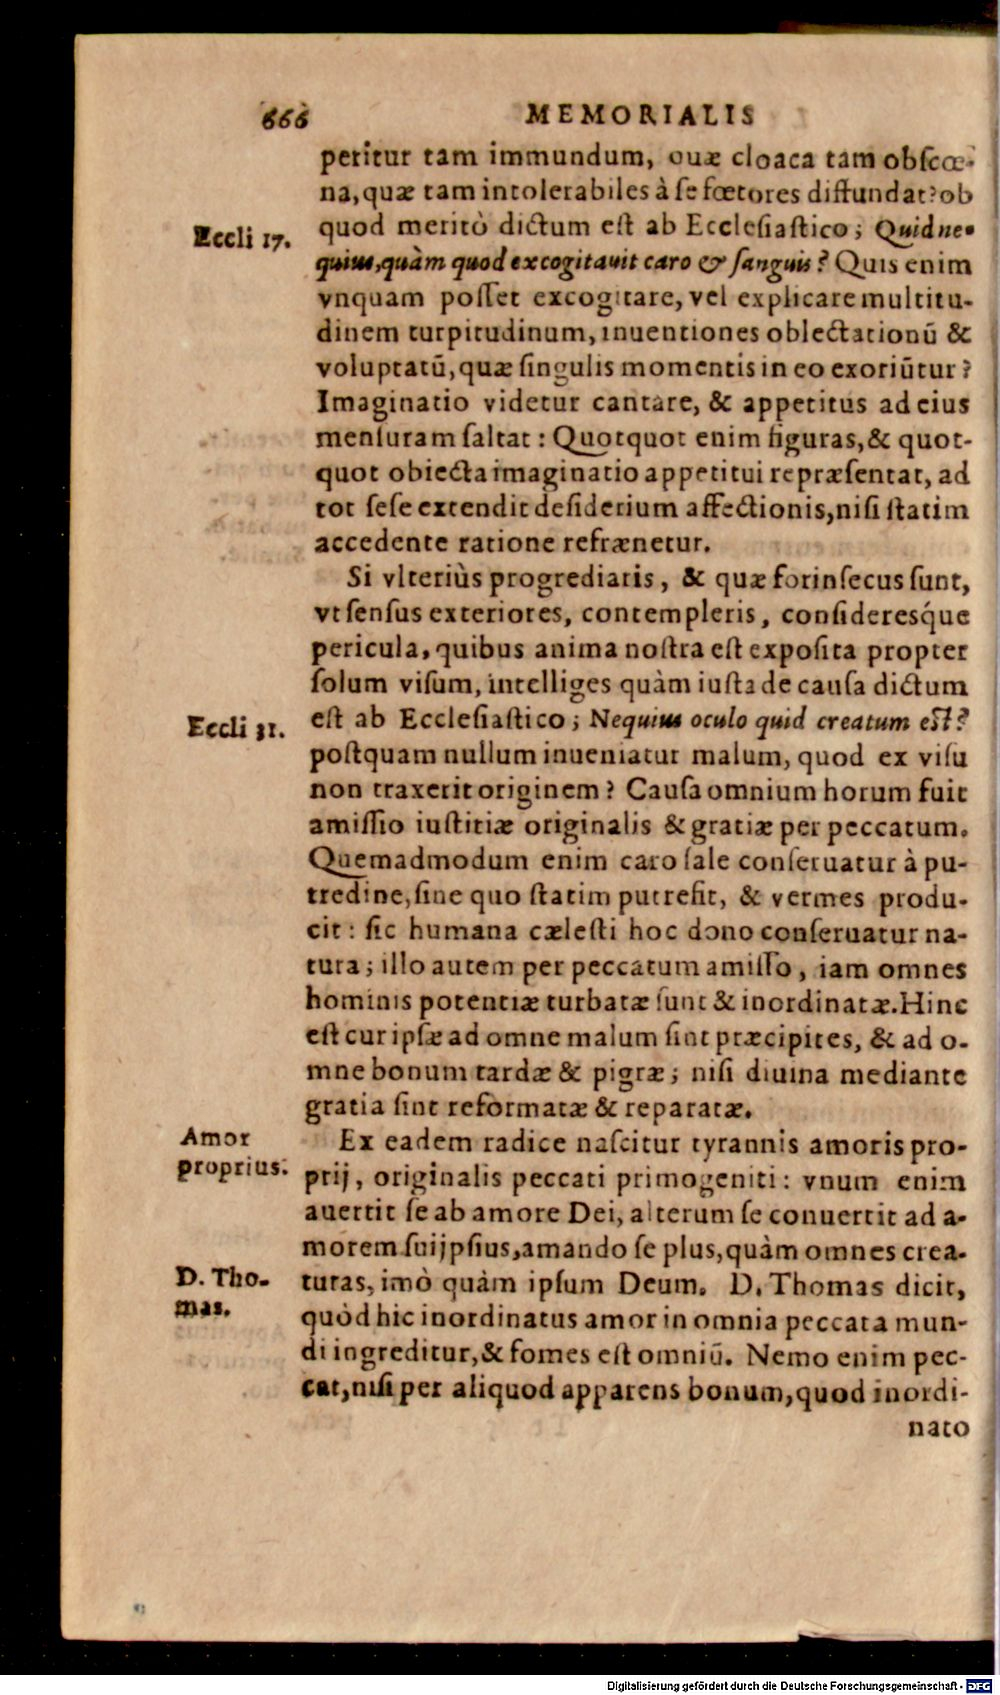 666 MEMORIALIS
peritur tam immundum, quæ cloaca tam obſcœ-
na, quæ tam intolerabiles à ſe fœtores diffundat? ob
quod meritò dictum eſt ab Eccleſiaſtico; Quid ne-
Eccli 17.
quius, quàm quod excogitauit caro & ſanguis? Quis enim
vnquam poſſet excogitare, vel explicare multitu-
dinem turpitudinum, inuentiones oblectationū &
voluptatū, quæ ſingulis momentis in eo exoriūtur?
Imaginatio videtur cantare, & appetitus ad eius
menſuram ſaltat: Quotquot enim figuras, & quot-
quot obiecta imaginatio appetitui repræſentat, ad
tot ſeſe extendit deſiderium affectionis, niſi ſtatim
accedente ratione refrænetur.
Si vlteriùs progrediaris, & quæ forinſecus ſunt,
vt ſenſus exteriores, contempleris, conſidereśque
pericula, quibus anima noſtra eſt expoſita propter
ſolum viſum, intelliges quàm iuſta de cauſa dictum
eſt ab Eccleſiaſtico; Nequius oculo quid creatum eſt?
Eccli 31.
poſtquam nullum inueniatur malum, quod ex viſu
non traxerit originem? Cauſa omnium horum fuit
amiſſio iuſtitiæ originalis & gratiæ per peccatum.
Quemadmodum enim caro ſale conſeruatur à pu-
tredine, ſine quo ſtatim putrefit, & vermes produ-
cit: ſic humana cæleſti hoc dono conſeruatur na-
tura; illo autem per peccatum amiſſo, iam omnes
hominis potentiæ turbatæ ſunt & inordinatæ. Hinc
eſt cur ipſæ ad omne malum ſint præcipites, & ad o-
mne bonum tardæ & pigræ; niſi diuina mediante
gratia ſint reformatæ & reparatæ.
Amor
proprius.
Ex eadem radice naſcitur tyrannis amoris pro-
prij, originalis peccati primogeniti: vnum enim
auertit ſe ab amore Dei, alterum ſe conuertit ad a-
morem ſuijpſius, amando ſe plus, quàm omnes crea-
D. Tho-
mas.
turas, imò quàm ipſum Deum. D. Thomas dicit,
quòd hic inordinatus amor in omnia peccata mun-
di ingreditur, & fomes eſt omniū. Nemo enim pec-
cat, niſi per aliquod apparens bonum, quod inordi-
nato
Digitalisierung gefördert durch die Deutsche Forschungsgemeinschaft - DFG